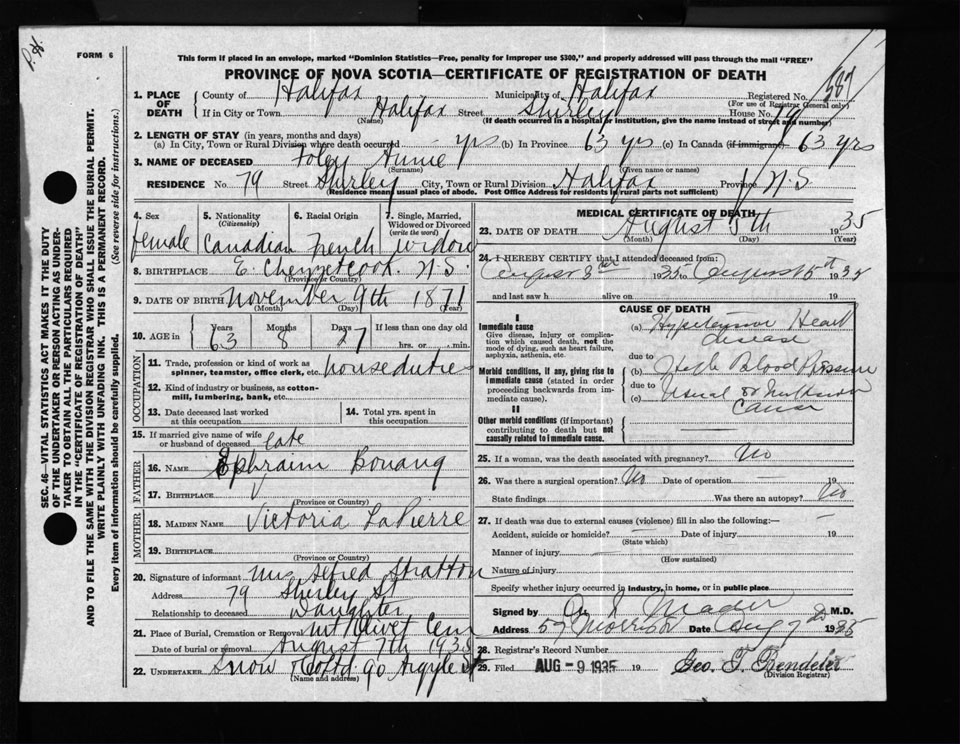 P.H.
FORM 6
This form if placed in an envelope, marked “Dominion Statistics—Free, penalty for improper use $300,” and properly addressed will pass through the mail “FREE”
PROVINCE OF NOVA SCOTIA—CERTIFICATE OF REGISTRATION OF DEATH
1. PLACE OF DEATH County of Halifax Municipality of Halifax Registered No. 587
(For use of Registrar General only)
If in City or Town Halifax Street Shirley House No. 79
(Name) (If death occurred in a hospital or institution, give the name instead of street and number)
2. LENGTH OF STAY (in years, months and days)
(a) In City, Town or Rural Division where death occurred — yrs (b) In Province 63 yrs (c) In Canada (if immigrant) 63 yrs
3. NAME OF DECEASED Foley Annie
(Surname) (Given name or names)
RESIDENCE No. 79 Street Shirley City, Town or Rural Division Halifax Province N.S
(Residence means usual place of abode. Post Office Address for residents in rural parts not sufficient)
4. Sex female
5. Nationality (Citizenship) Canadian
6. Racial Origin French
7. Single, Married, Widowed or Divorced (write the word) widow
8. BIRTHPLACE E. Chezzetcook. N.S.
(Province or Country)
9. DATE OF BIRTH November 9th 1871
(Month) (Day) (Year)
10. AGE in Years 63 Months 8 Days 27 If less than one day old hrs. or min.
OCCUPATION
11. Trade, profession or kind of work as spinner, teamster, office clerk, etc. houseduties
12. Kind of industry or business, as cotton-mill, lumbering, bank, etc.
13. Date deceased last worked at this occupation
14. Total yrs. spent in this occupation
15. If married give name of wife or husband of deceased late
FATHER
16. NAME Ephraim Bonang
17. BIRTHPLACE
(Province or Country)
MOTHER
18. MAIDEN NAME Victoria LaPierre
19. BIRTHPLACE
(Province or Country)
20. Signature of informant Mrs Alfred Stratton
Address 79 Shirley St
Relationship to deceased Daughter
21. Place of Burial, Cremation or Removal Mt Olivet Cem
Date of burial or removal August 7th 1935
22. UNDERTAKER Snow & Co Ltd 90 Argyle St
(Name and address)
MEDICAL CERTIFICATE OF DEATH
23. DATE OF DEATH August 5th 1935
(Month) (Day) (Year)
24. I HEREBY CERTIFY that I attended deceased from:
August 3rd 1935 to August 5th 1935
and last saw h alive on 19
CAUSE OF DEATH
I
Immediate cause
Give disease, injury or complication which caused death, not the mode of dying, such as heart failure, asphyxia, asthenia, etc.
(a) Hypertensive Heart disease
due to
Morbid conditions, if any, giving rise to immediate cause (stated in order proceeding backwards from immediate cause).
(b) High Blood Pressure
due to
(c) Usual cause
II
Other morbid conditions (if important) contributing to death but not causally related to immediate cause.
25. If a woman, was the death associated with pregnancy? No
26. Was there a surgical operation? No Date of operation — 19
State findings Was there an autopsy? No
27. If death was due to external causes (violence) fill in also the following:—
Accident, suicide or homicide? Date of injury 19
(State which)
Manner of injury
(How sustained)
Nature of injury
Specify whether injury occurred in industry, in home, or in public place
Signed by Mader M.D.
Address 57 Morris Date Aug 7 1935
28. Registrar's Record Number
29. Filed AUG -9 1935 19 Geo. T. Rendele
(Division Registrar)
SEC. 46—VITAL STATISTICS ACT MAKES IT THE DUTY
OF THE UNDERTAKER OR PERSON ACTING AS UNDER-
TAKER TO OBTAIN ALL THE PARTICULARS REQUIRED
IN THE “CERTIFICATE OF REGISTRATION OF DEATH”
AND TO FILE THE SAME WITH THE DIVISION REGISTRAR WHO SHALL ISSUE THE BURIAL PERMIT.
WRITE PLAINLY WITH UNFADING INK. THIS IS A PERMANENT RECORD.
Every item of information should be carefully supplied. (See reverse side for instructions.)